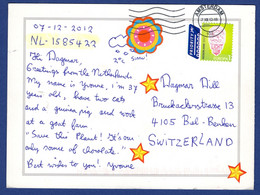 07-12-2012
NL-1585422
Hi Dagmar,
Greetings from the Netherlands
My name is Yvonne, i'm 37
years old, have two cats
and a guinea pig, and work
at a goat farm.
"Save this Planet! It's our
only source of chocolate."
Best wishes to you! Yvonne
2°C
Snow!
AMSTERDAM
PRIORITY
Dagmar Dill
4105 Biel-Benken
SWITZERLAND